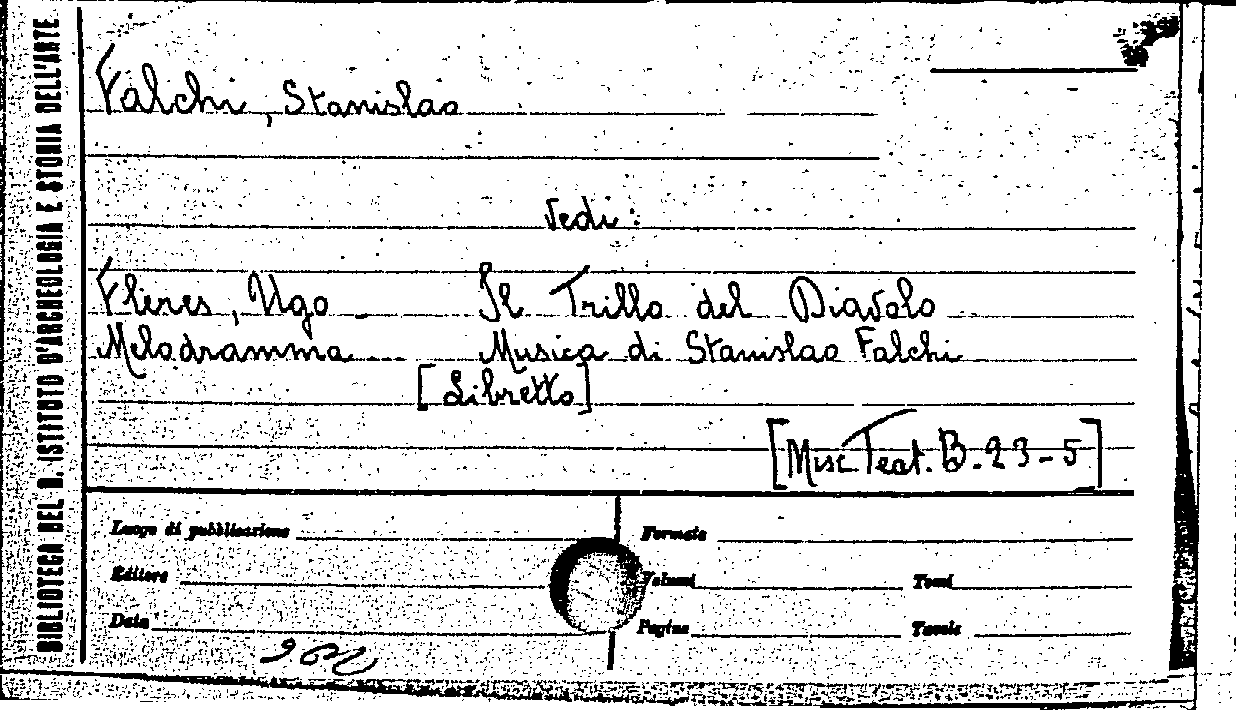 BIBLIOTECA DEL R. ISTITUTO D'ARCHEOLOGIA E STORIA DELL'ARTE
Falchi, Stanislao
Vedi:
Fleres, Ugo - Il Trillo del Diavolo
Melodramma ... Musica di Stanislao Falchi
[Libretto]
[Misc. Teat. B. 23-5]
Luogo di pubblicazione Formato
Editore Volumi Tomi
Data Pagine Tavole